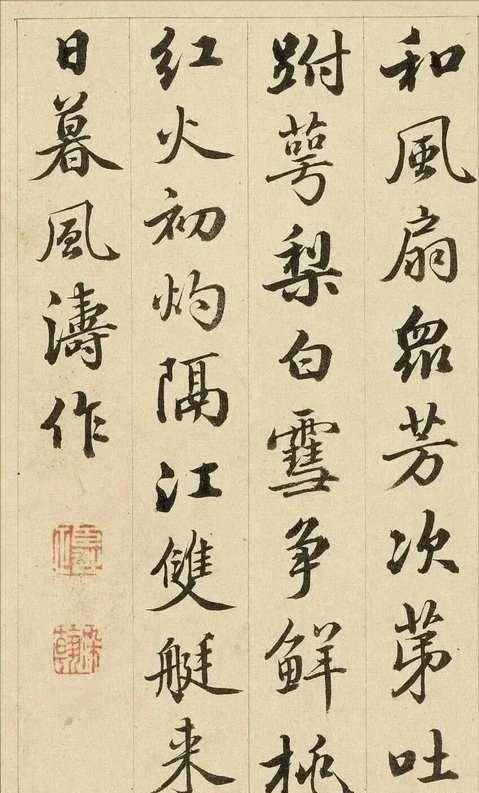 和風扇衆芳次苐吐
跗萼梨白雪争鮮桃
紅火初灼隔江雙艇来
日暮風濤作